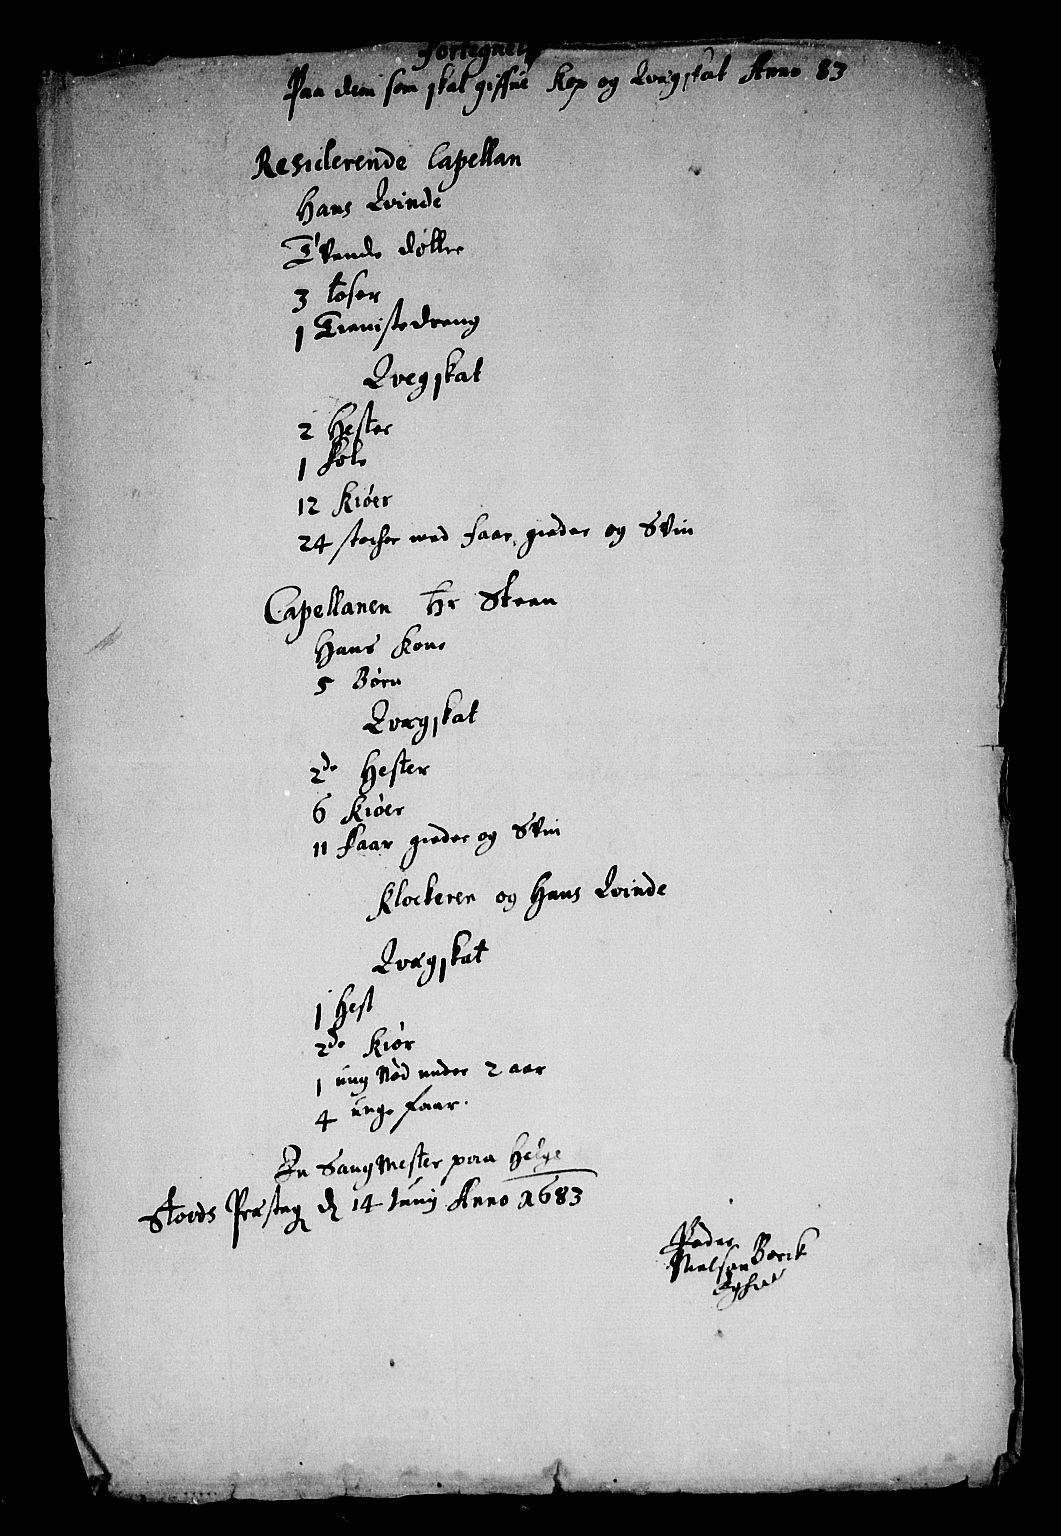 Fortegnels
Paa dem som skal giffue kop og Qvægskat Anno 83
Residerende Capellan
Hans Qvinde
Tvende døttre
3 töser
1 Tienistedreng
Qvegskat
2 Hester
1 Fole
12 kiöer
24 stöcher med faar, gieder og Svin
Capellanen Hr Steen
Hans kone
5 Börn
Qvægskat
2de Hester
6 kiöer
11 faar gieder og Svin
Klockeren og Hans Qvinde
Qvægskat
1 Hest
2de kiör
1 ung Nöd under 2 aar
4 unge faar.
En Sangmester paa Helge
Stods Præsteg d 14 Junij Anno 1683
Peder
Nielsøn Borck